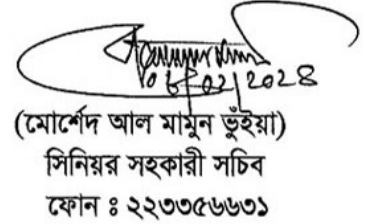 (মোর্শেদ আল মামুন ভুঁইয়া)
সিনিয়র সহকারী সচিব
ফোন ঃ ২২৩৩৫৬৬৩১